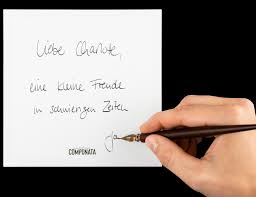 Liebe Charlotte,
eine kleine Freude
in schwierigen Zeiten
Ja
COMPONATA